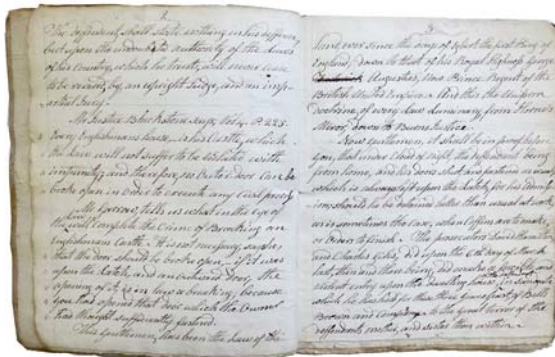 2
The defendant, shall state nothing in his defence,
but upon the undoubted authority of the Laws
of his Country, which he trusts, will never cease
to be revered, by an upright Judge, and an imp-
artial Jury.
Mr Justice Blackstone says, Vol 4 P. 223.
Every Englishmans house, is his Castle, which
the Law will not suffer to be violated with
impunity, and therefore, no Outer door can be
broke open in Order to execute any Civil process
Mr Garrow, tells us what in the eye of
the will complete the Crime of Breaking an
Englishmans Castle. It is not necessary, says he
that the door should be broke open, if it was
upon the Latch, and an outward Door, the
opening of it is in Law a breaking, because
you had opened that door which the Owner
had thought sufficiently fastened.
This Gentlemen, has been the Law of the
3
land, ever since the days of Egbert the first King of
England, down to that of his Royal Highness George
Augustus, now Prince Regent of the
British United Empire. And this the Uniform
doctrine, of every Law Luminary, from Horne's
Mirror, down to Burns Justice.
Now Gentlemen, it shall be proved before
you, that under Cloud of night, the defendant being
from home, and his doors shut and fastened as usual
which is always left upon the Latch, for his coming
in, should he be detained later than usual at work,
as is sometimes the case, when Coffins are to make,
or Orders to finish. The prosecutors David Hamilton
and Charles Giles, did upon the 6th day of March
last, then and there being, did make a forcible and
violent entry upon the dwelling house, in
which he has held for these three Years past, of Bell
Brown and Company to the Great terror of the
defendants, mother, and sister then within.